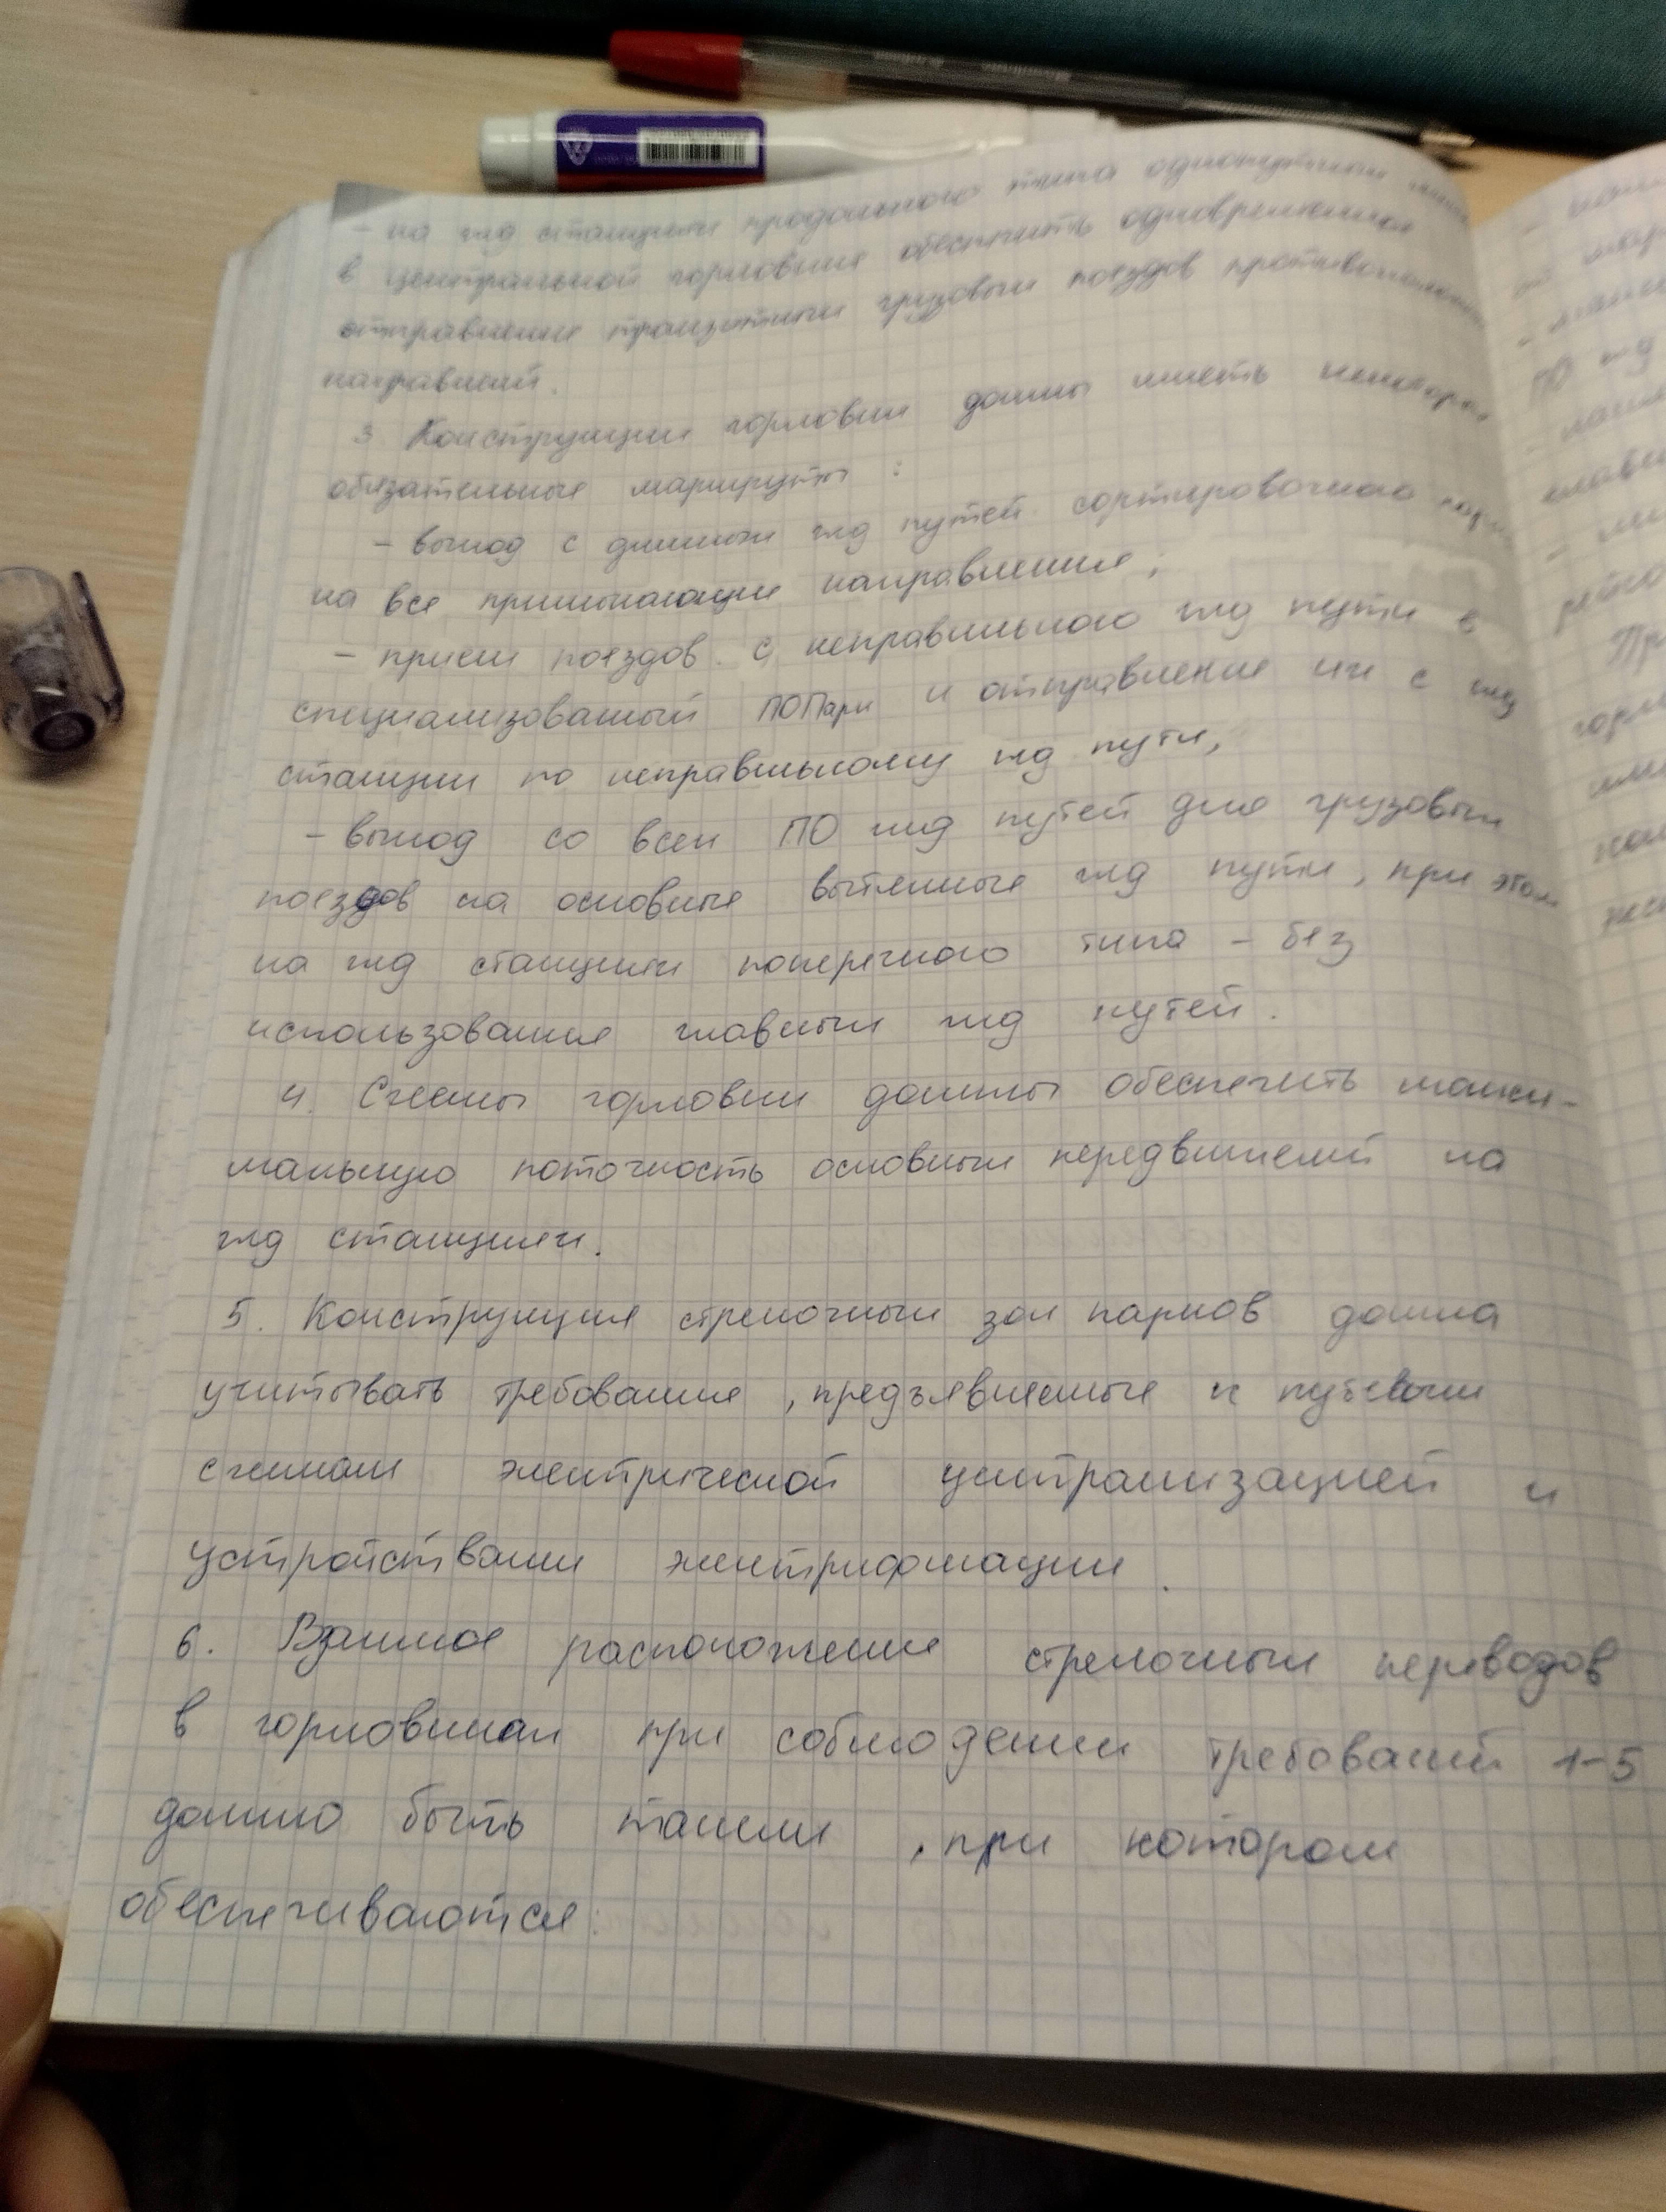 - на жд станциях продольного типа однопутных
в центральной горловине обеспечить одновременное
отправление транзитных грузовых поездов противоположных
направлений.
3 Конструкции горловин должны иметь некоторые
обязательные маршруты:
- выход с длинных жд путей сортировочного парка
на все примыкающие направления;
- прием поездов с неправильного жд пути в
специализованный ПОПарк и отправление их с жд
станции по неправильному жд пути,
- выход со всех ПО жд путей для грузовых
поездов на основные вытяжные жд пути, при этом
на жд станциях поперечного типа - без
использования главных жд путей.
4. Схемы горловин должны обеспечить макси-
мальную поточность основных передвижений на
жд станциях.
5. Конструкция стрелочных зон парков должна
учитывать требования, предъявляемые к путевым
схемам электрической централизацией и
устройствами электрификации.
6. Взаимное расположение стрелочных переводов
в горловинах при соблюдении требований 1-5
должно быть таким, при котором
обеспечиваются: